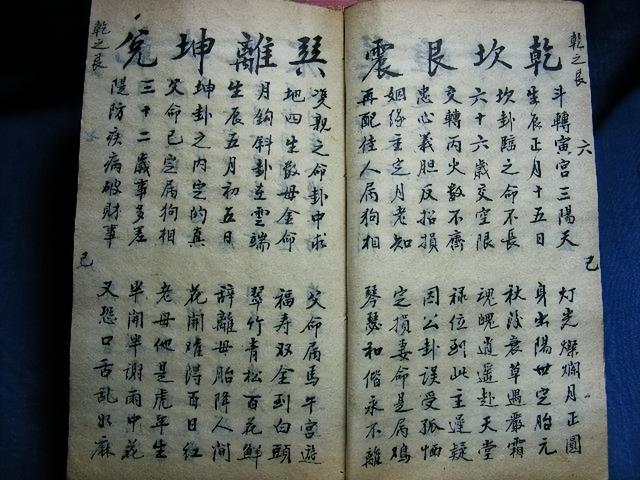 乾之艮
六
已
乾坎艮震
斗轉寅宮三陽天
灯光燦爛月正圓
生辰正月十五日
身出陽世定胎元
坎卦臨之命不長
秋後衰草遇嚴霜
六十六歲交空限
魂魄逍遥赴天堂
交轉丙火數不齊
禄位到此主遲疑
忠心義胆反招損
因公卦誤受孤恓
姻緣主定月老知
定損妻命是属鸡
再配佳人属狗相
琴瑟和偕永不離
巽離坤兌
雙親之命卦中求
父命属馬午宮遊
地四生散母金命
福寿双全到白頭
月鈎斜卦在雲端
翠竹青松百花鮮
生辰五月初五日
辞離母胎降人间
坤卦之内定的真
花開难得百日红
父命已定属狗相
老母他是虎年生
三十二歲事多差
半開半謝雨中花
隄防疾病破财事
又恐口舌乱如麻
乾之艮
已